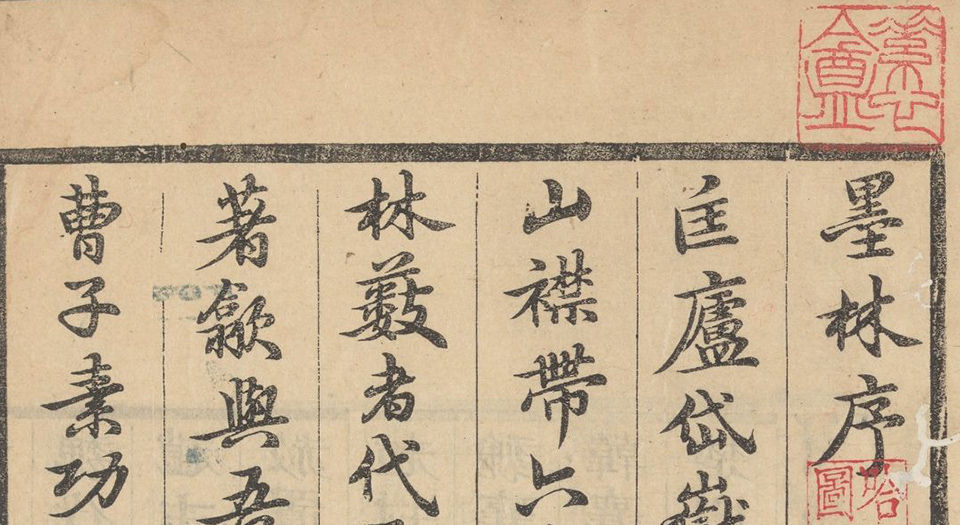 墨林序
匡廬岱嶽
山襟帶六
林藪者代
著歙與吾
曹子素功
圖